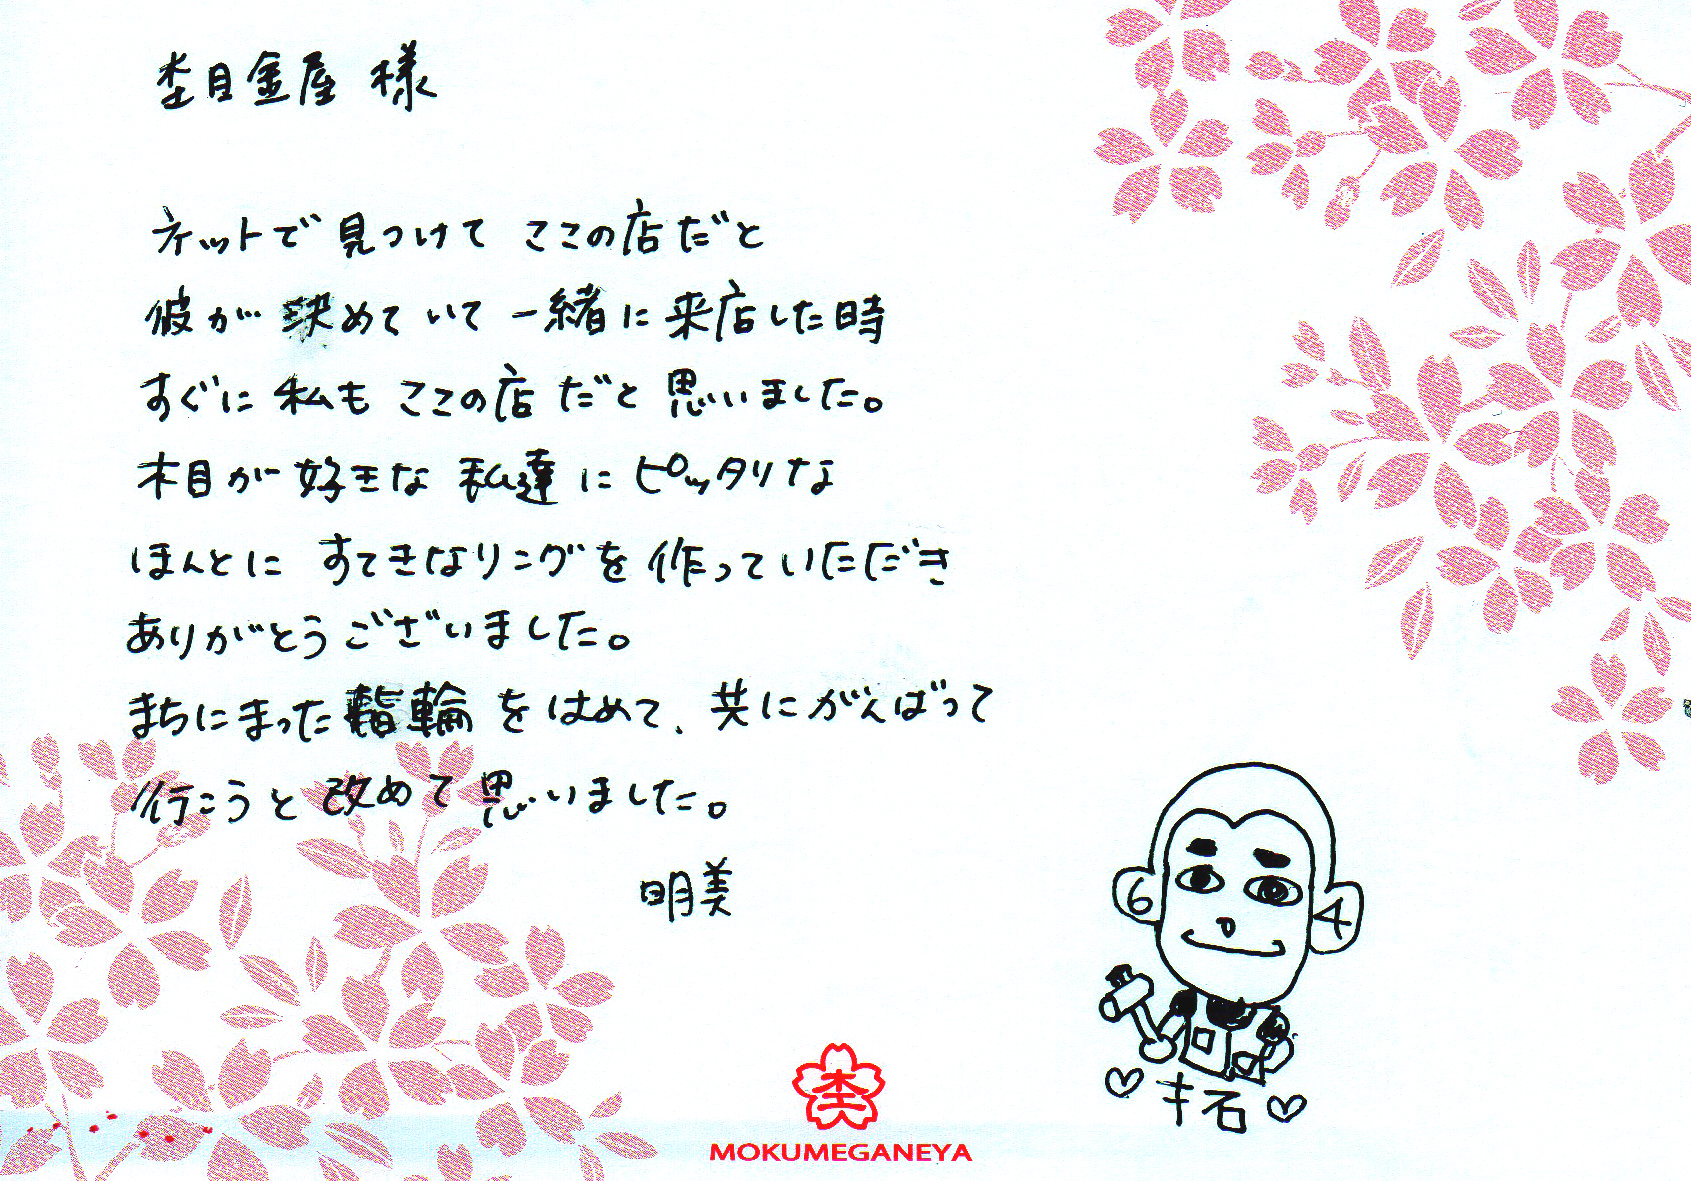 杢目金屋 様
ネットで見つけて ここの店だと
彼が 決めていて 一緒に来店した時
すぐに 私も ここの店 だと 思いました。
木目が 好きな 私達に ピッタリな
ほんとに すてきなリングを 作っていただき
ありがとうございました。
まちにまった指輪をはめて、共にがんばって
行こうと 改めて 思いました。
明美
6 4
杢
MOKUMEGANEYA